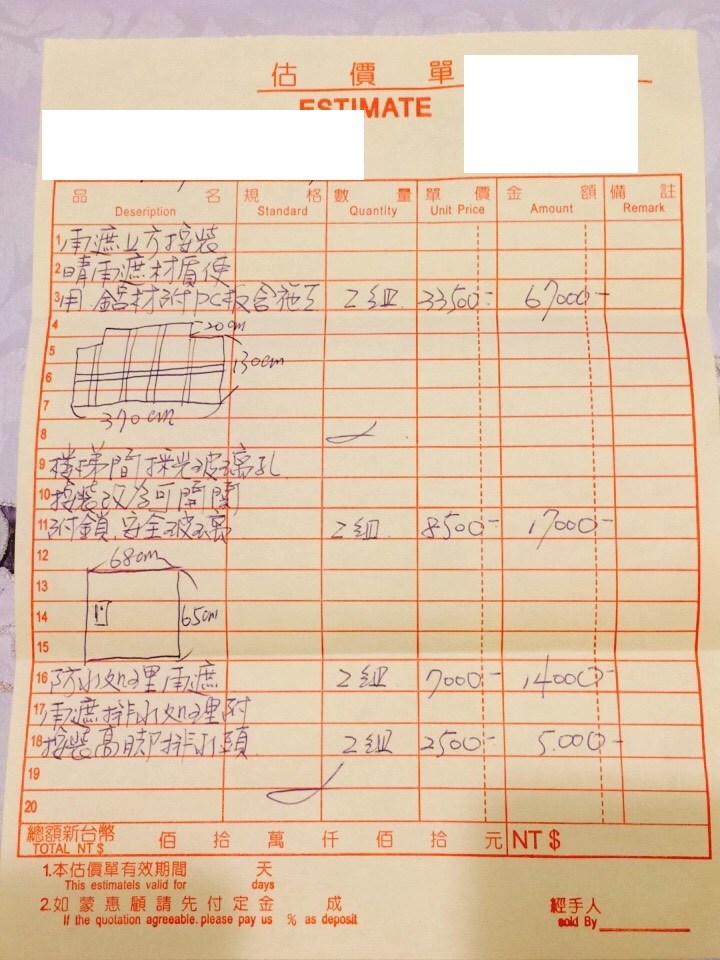 估價單
ESTIMATE
品名 規格 數量 單價 金額 備註
Deseription Standard Quantity Unit Price Amount Remark
1 雨遮上方接裝
2 晴雨遮材質使
3 用 鋁材附PC板含施工 2組 33500- 67000-
4 20cm
5 130cm
6
7 370cm
8
9 樓梯間採光玻璃孔
10 接裝改為可開關
11 附鎖.安全玻璃 2組 8500- 17000-
12 68cm
13
14 65cm
15
16 防水処理雨遮 2組 7000- 14000-
17 雨遮排水処理附
18 接裝高腳排水頭 2組 2500- 5.000-
19
20
總額新台幣 佰 拾 萬 仟 佰 拾 元 NT $
TOTAL NT $
1.本估價單有效期間 天
This estimatels valid for days
2.如蒙惠顧請先付定金 成
If the quotation agreeable.please pay us % as deposit
經手人
sold By